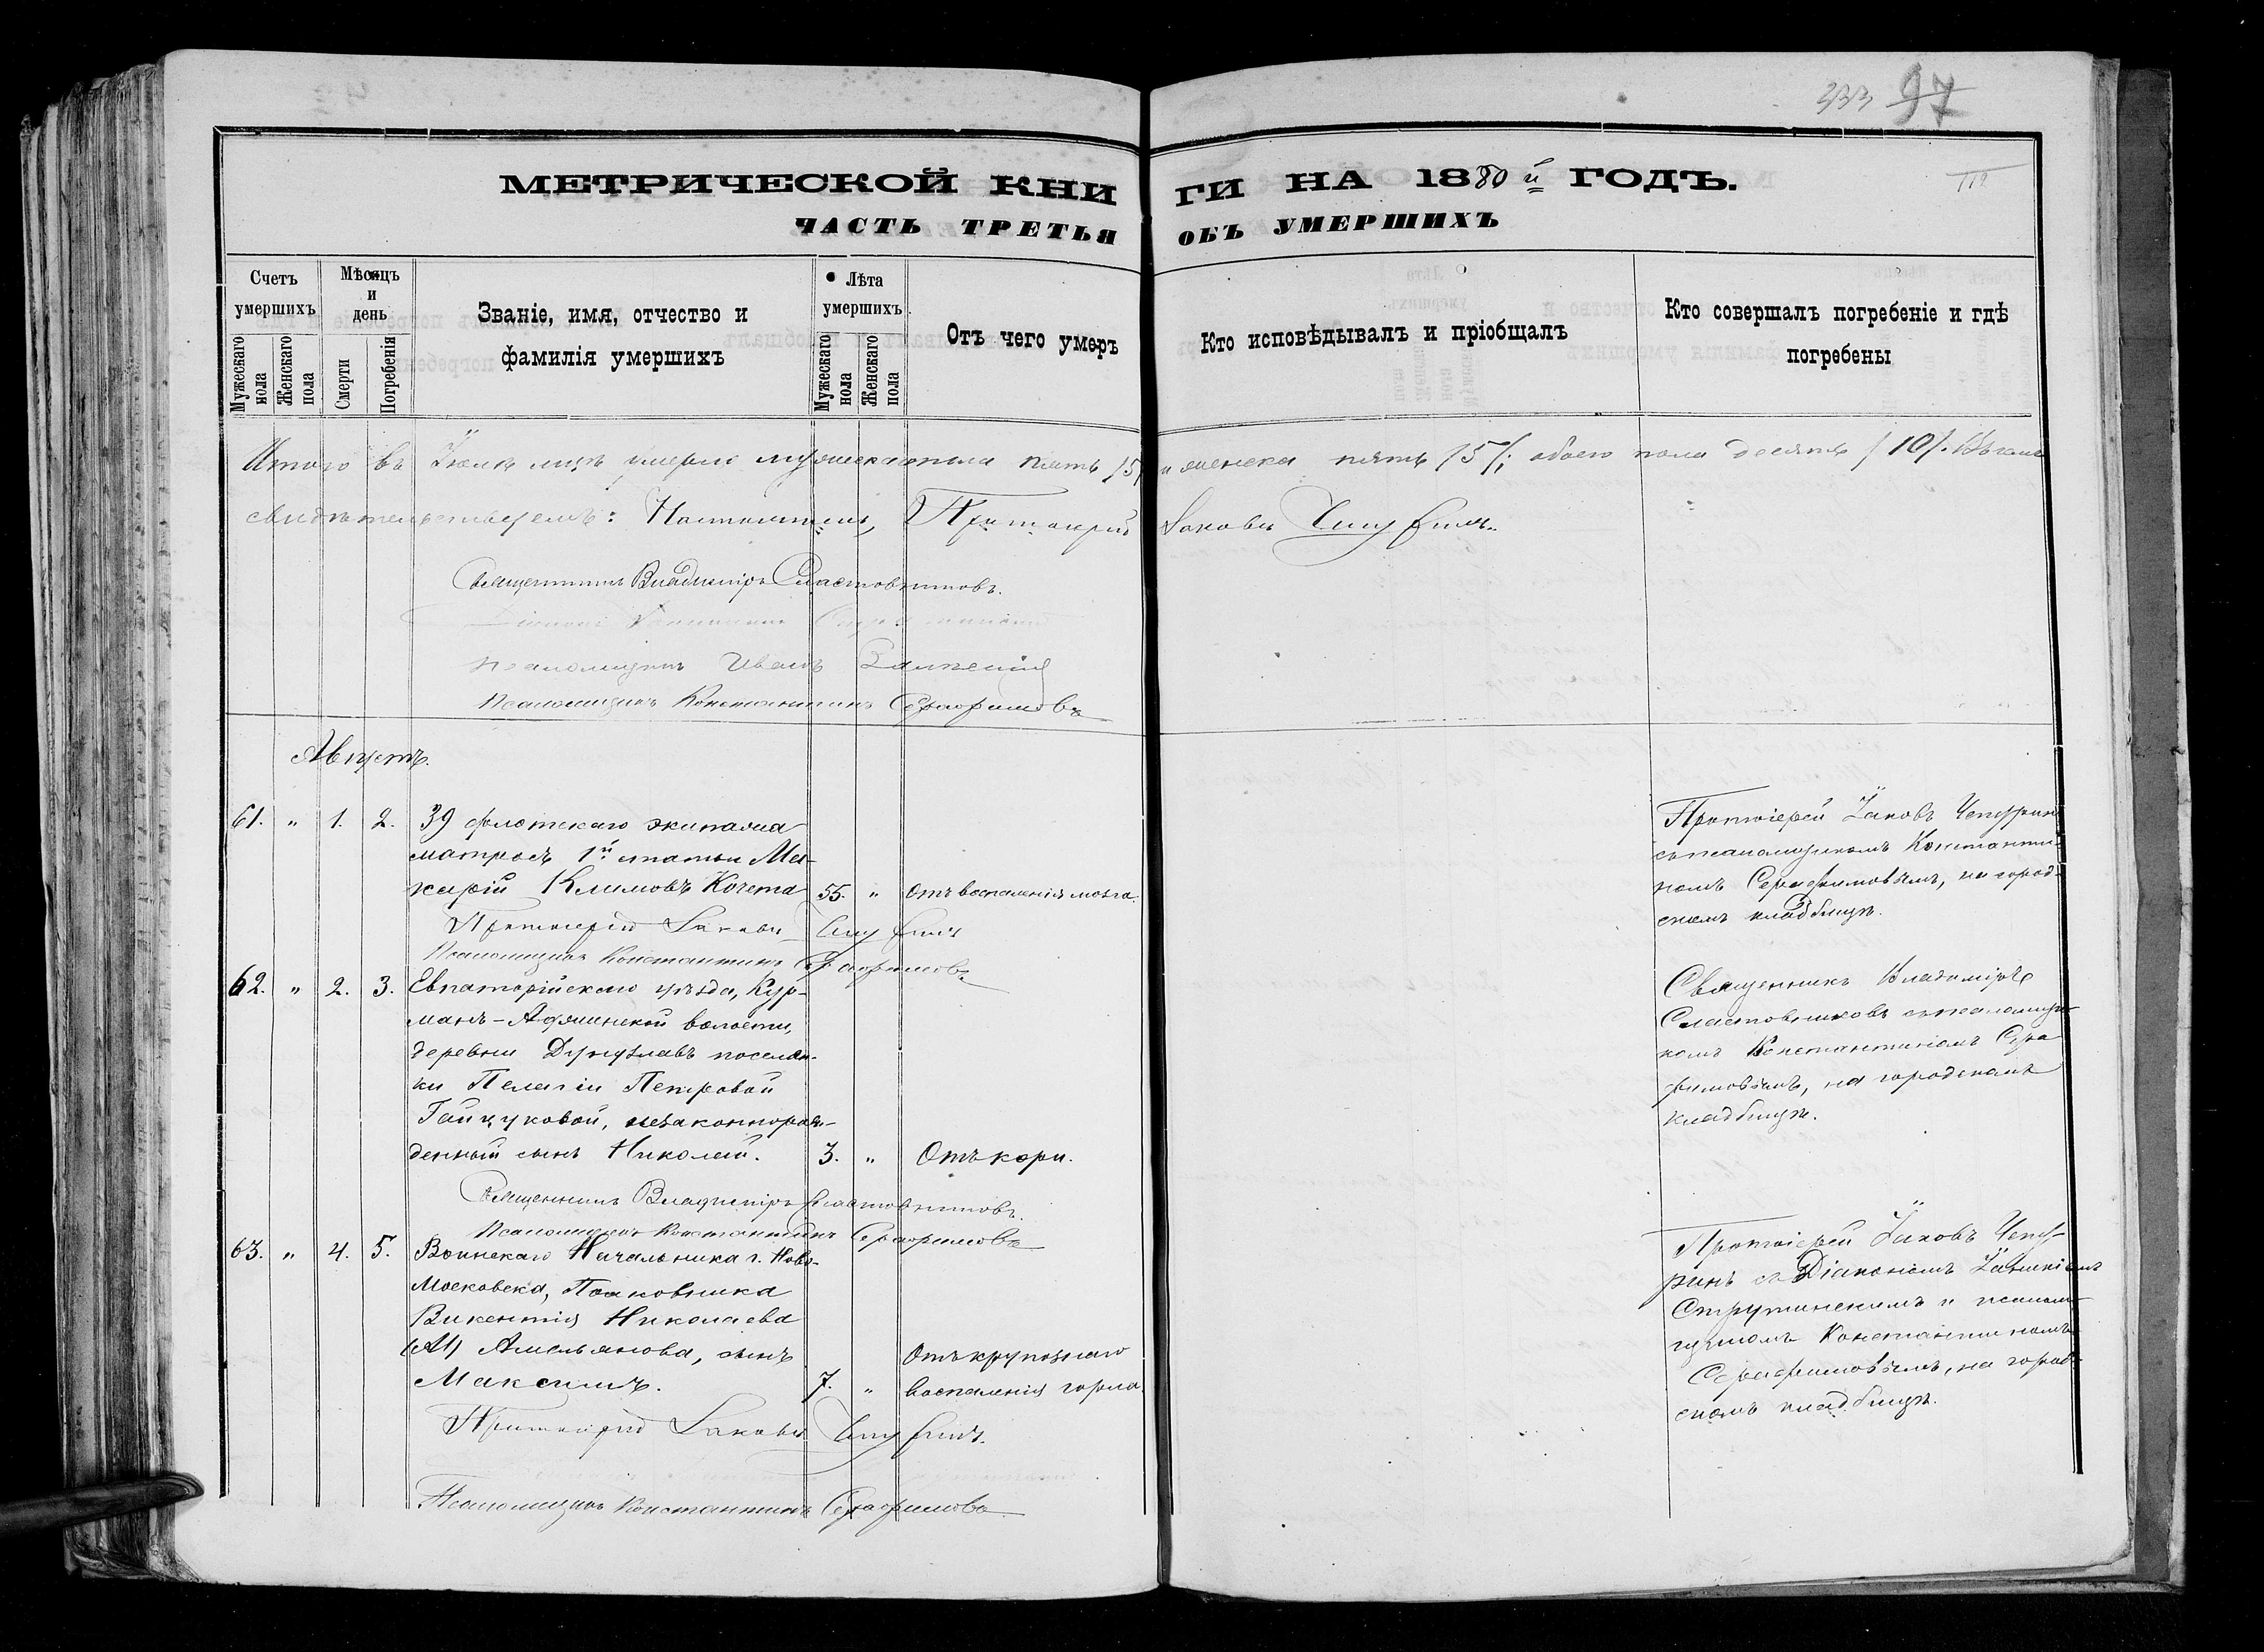 333 97
МЕТРИЧЕСКОЙ КНИГИ НА 1880й ГОДЪ.
112
ЧАСТЬ ТРЕТЬЯ ОБЪ УМЕРШИХЪ
Счетъ умершихъ
Мужескаго пола
Женскаго пола
Мѣсяцъ и день
Смерти
Погребенія
Званіе, имя, отчество и фамилія умершихъ
Лѣта умершихъ
Мужескаго пола
Женскаго пола
Отъ чего умеръ
Кто исповѣдывалъ и пріобщалъ
Кто совершалъ погребеніе и гдѣ погребены
Итого въ Іюлѣ мцѣ умерло мужескаго пола пять /5/ и женска пять /5/; обоего пола десять /10/. Въ чемъ
свидѣтельствуемъ: Настоятель, Протоіерей Іаковъ Чепуринъ.
Священникъ Владиміръ Сластовниковъ.
Псаломщикъ Иванъ
Псаломщикъ Константинъ Серафимовъ
Августъ.
61. " 1. 2. 39 флотскаго экипажа
матросъ 1й статьи Ма-
карій Климовъ Кочета 55. " Отъ воспаленія мозга.
Протоіерей Іаковъ Чепуринъ
Псаломщикъ Константинъ Серафимовъ
Протоіерей Іаковъ Чепуринъ
съ псаломщикомъ Константи-
номъ Серафимовымъ, на город-
скомъ кладбищѣ.
62. " 2. 3. Евпаторійскаго уѣзда, Кур-
манъ-Аджинской волости,
деревни Дунузлавъ поселян-
ки Пелагіи Петровой
Гайцуковой, незаконнорож-
денный сынъ Николай. 3. " Отъ кори.
Священникъ Владиміръ Сластовниковъ.
Псаломщикъ Константинъ Серафимовъ
Священникъ Владиміръ
Сластовниковъ съ псаломщи-
комъ Константиномъ Сера-
фимовымъ, на городскомъ
кладбищѣ.
63. " 4. 5. Воинскаго Начальника г. Ново-
московска, Полковника
Викентія Николаева
Амельянова, сынъ Отъ крупознаго
Максимъ. 7. " воспаленія горла.
Протоіерей Іаковъ Чепуринъ.
Псаломщикъ Константинъ Серафимовъ
Протоіерей Іаковъ Чепу-
ринъ съ Діакономъ Іаникіемъ
Струтинскимъ и псалом-
щикомъ Константиномъ
Серафимовымъ, на город-
скомъ кладбищѣ.